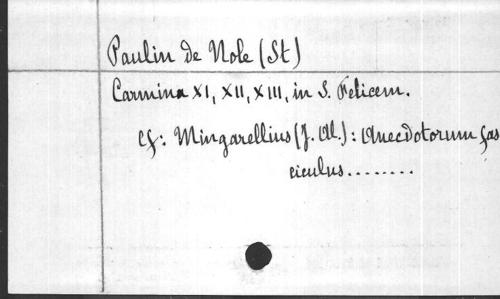 Paulin de Nole (St)
Carmina XI, XII, XIII, in S. Felicem.
Cf: Mingarellius (J. Al.): Anecdotorum fas
ciculus........